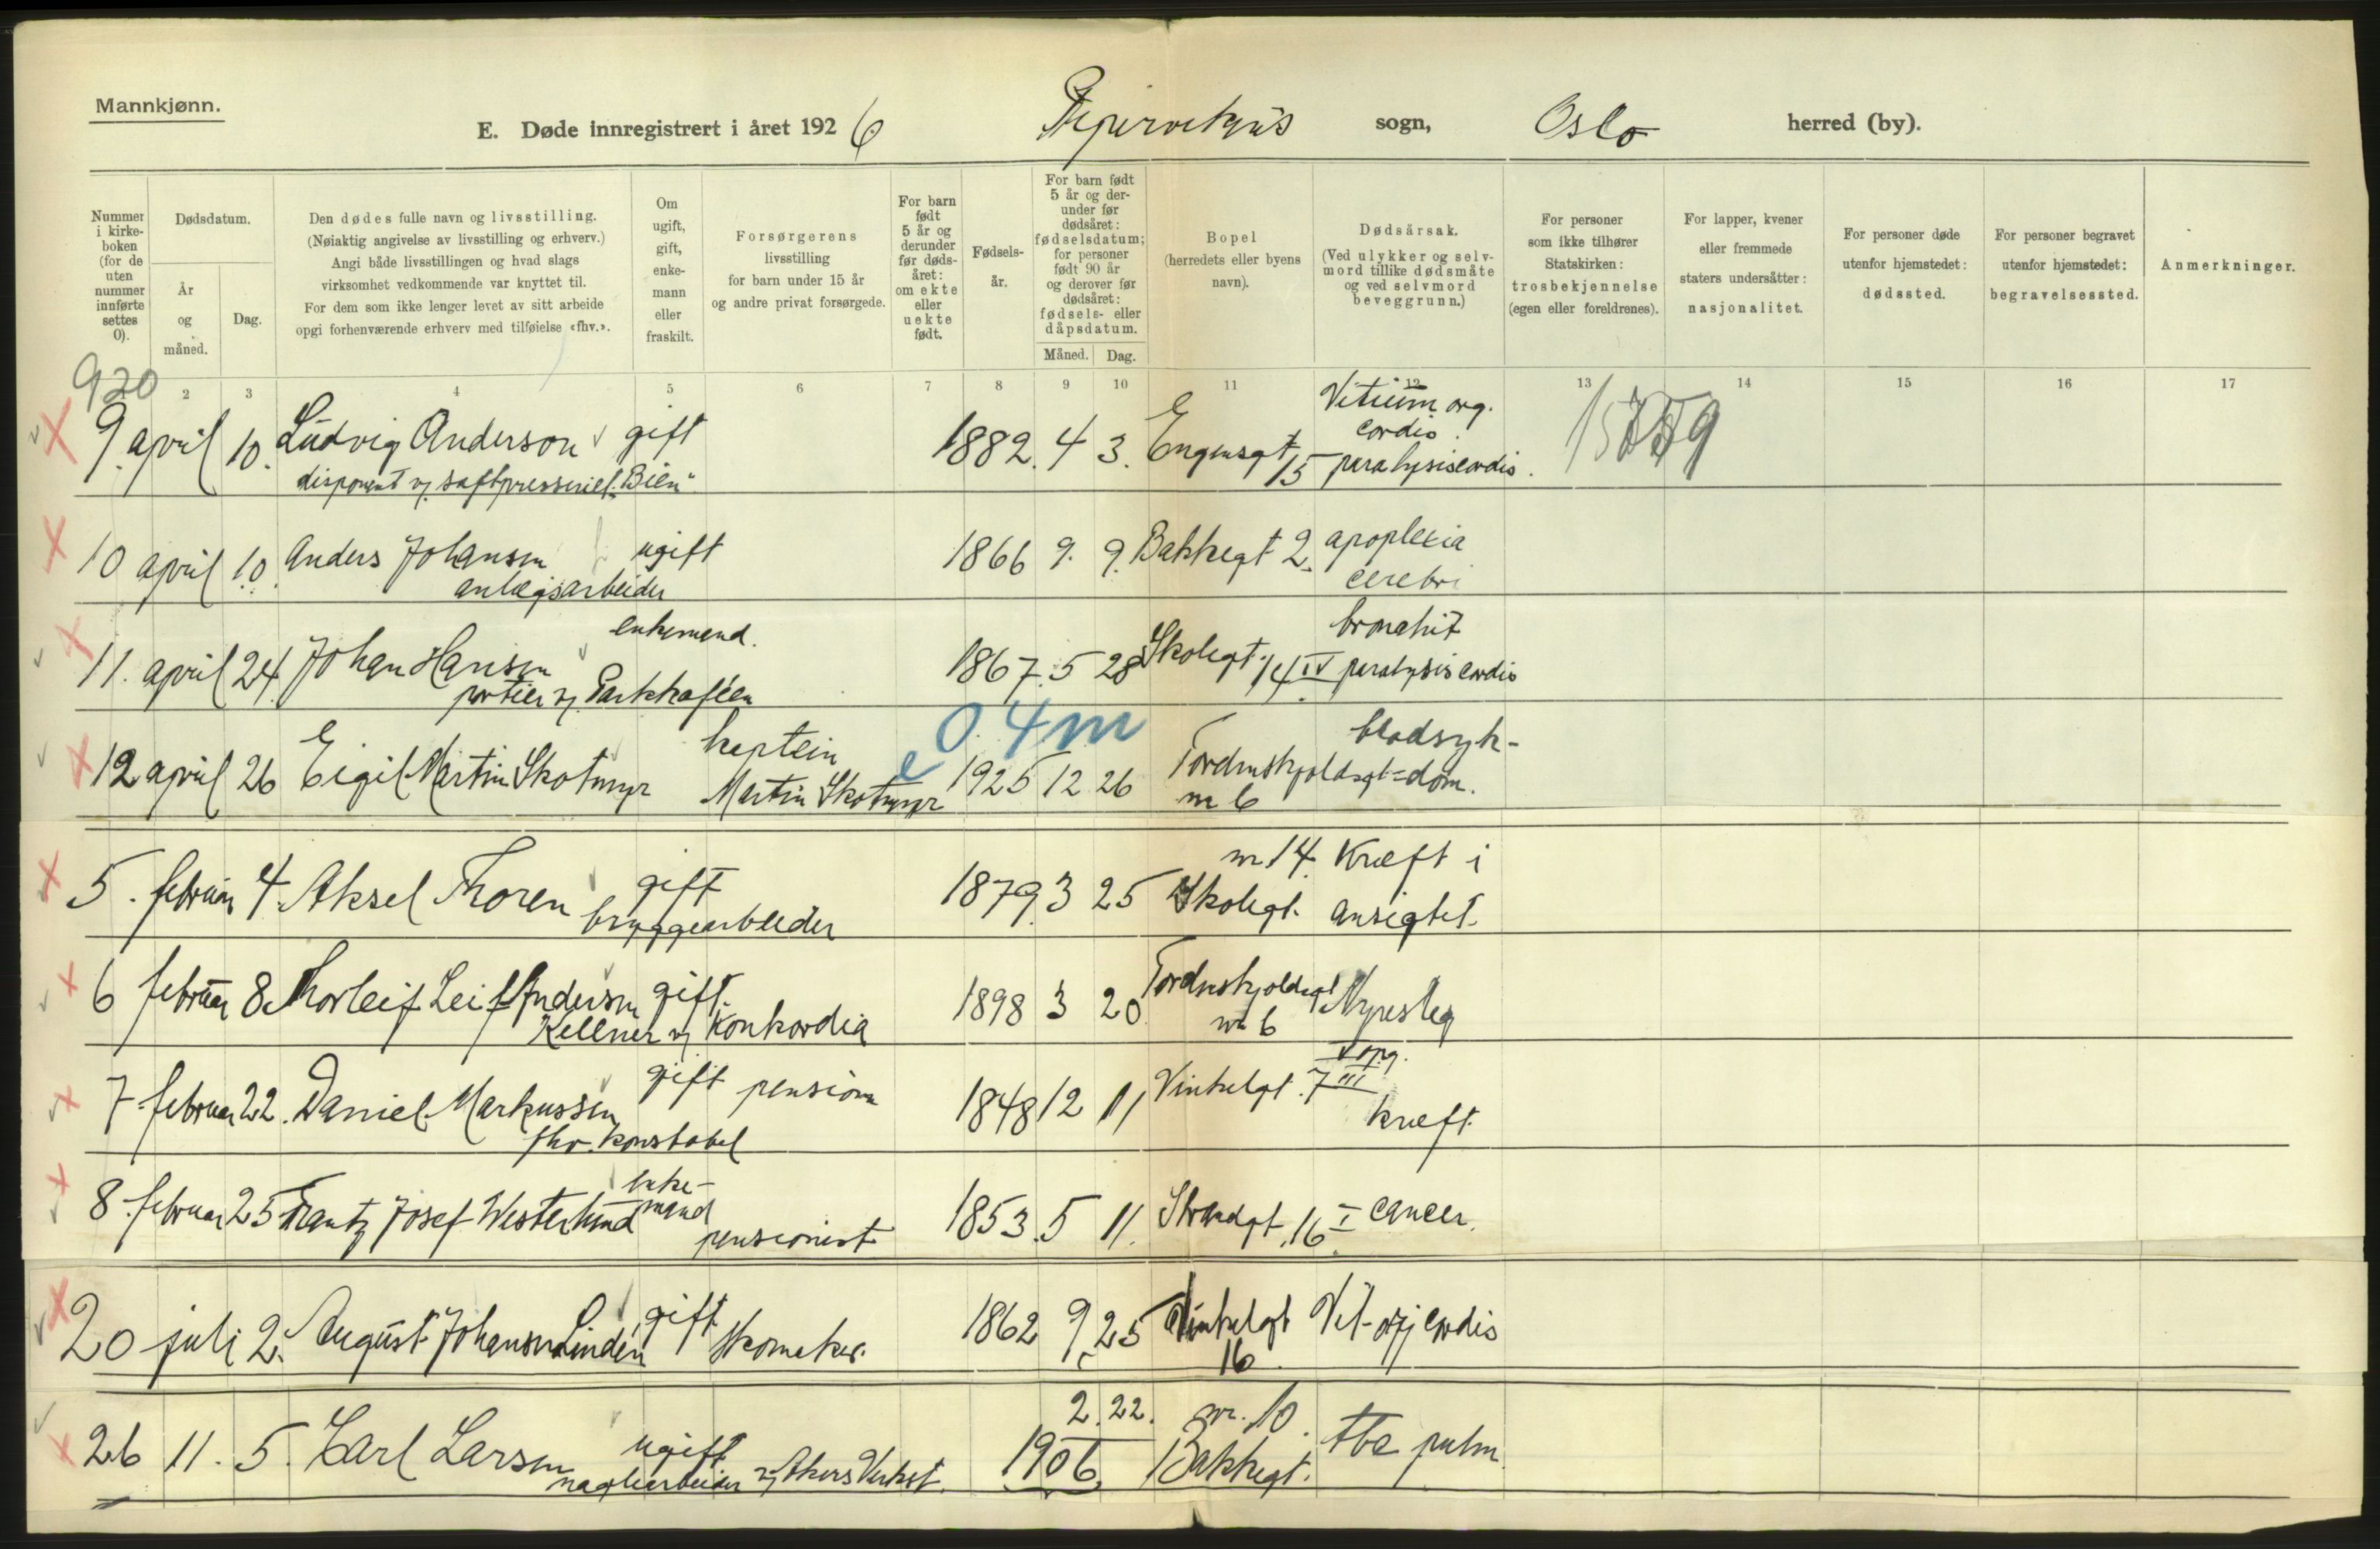 Mannkjønn.
E. Døde innregistrert i året 1926 sogn, Oslo herred (by).
Nummer i kirkeboken (for de uten nummer innførte settes 0).
Dødsdatum.
År og måned.
Dag.
Den dødes fulle navn og livsstilling.
(Nøiaktig angivelse av livsstilling og erhverv.)
Angi både livsstillingen og hvad slags
virksomhet vedkommende var knyttet til.
For dem som ikke lenger levet av sitt arbeide
opgi forhenværende erhverv med tilføielse «fhv.».
Om ugift, gift, enkemann eller fraskilt.
Forsørgerens
livsstilling
for barn under 15 år
og andre privat forsørgede.
For barn født 5 år og derunder før dødsåret: om ekte eller uekte født.
Fødselsår.
For barn født 5 år og derunder før dødsåret: fødselsdatum; for personer født 90 år og derover før dødsåret: fødsels- eller dåpsdatum.
Måned. Dag.
Bopel
(herredets eller byens
navn).
Dødsårsak.
(Ved ulykker og selv-
mord tillike dødsmåte
og ved selvmord
beveggrunn.)
For personer
som ikke tilhører
Statskirken:
trosbekjennelse
(egen eller foreldrenes).
For lapper, kvener
eller fremmede
staters undersåtter:
nasjonalitet.
For personer døde
utenfor hjemstedet:
dødssted.
For personer begravet
utenfor hjemstedet:
begravelsessted.
Anmerkninger.
920
2 3 4 5 6 7 8 9 10 11 12 13 14 15 16 17
9. april 10. Ludvig Anderson gift 1882. 4 3. Engensgt 15 Vitium org. cordis. paralysis cordis.
disponent v. saftpresseriet "Bien"
10 april 10. Anders Johansen ugift 1866 9. 9. Bakkegt 2. apoplexia cerebri
anlægsarbeider
11. april 24. Johan Hansen enkemand. 1867. 5 28 Skolegt. 14 IV bronchit paralysis cordis
portier v. Parkkaféen
12 april 26 Eigil Martin Skotmyr kaptein Martin Skotmyr e 0. 4 m 1925 12 26 Tordenskjoldsgt nr 6 blodsyk=dom.
5. februar 4. Aksel Thoren gift 1879. 3 25 nr 14. Skolegt. Kræft i ansigtet.
bryggearbeider
6 februar 8. Thorleif Leif Andersen gift. 1898 3 20 Tordenskjoldsgt nr 6
Kellner v. Konkordia
7 februar 22. Daniel Markussen gift pension 1848 12 11 Vinkelgt. 7 III V opg. kræft.
fhv. konstabel
8. februar 25 Frantz Josef Westerlund enke-mand pensionist. 1853. 5 11. Strandgt. 16 I cancer.
20 juli 2. August Johansen Lindén gift skomaker. 1862 9 25 Vinkelgt 16 Vit. org cordis
26 11. 5. Karl Larsen ugift 1906 2. 22. nr. 10. Bakkegt. tbc pulm.
naglearbeider v. Akers Verkst.